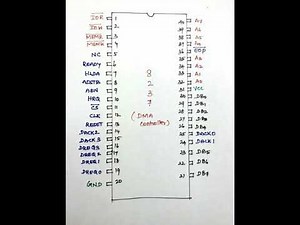 IOR 1
IOW 2
MEMR 3
MEMW 4
NC 5
READY 6
HLDA 7
ADSTB 8
AEN 9
HRQ 10
CS 11
CLK 12
RESET 13
DACK2 14
DACK3 15
DREQ3 16
DREQ2 17
DREQ1 18
DREQ0 19
GND 20
8
2
3
7
(DMA
controller)
40 A7
39 A6
38 A5
37 A4
36 EOP
35 A3
34 A2
33 A1
32 A0
31 VCC
30 DB0
29 DB1
28 DB2
27 DB3
26 DB4
25 DACK0
24 DACK1
23 DB5
22 DB6
21 DB7